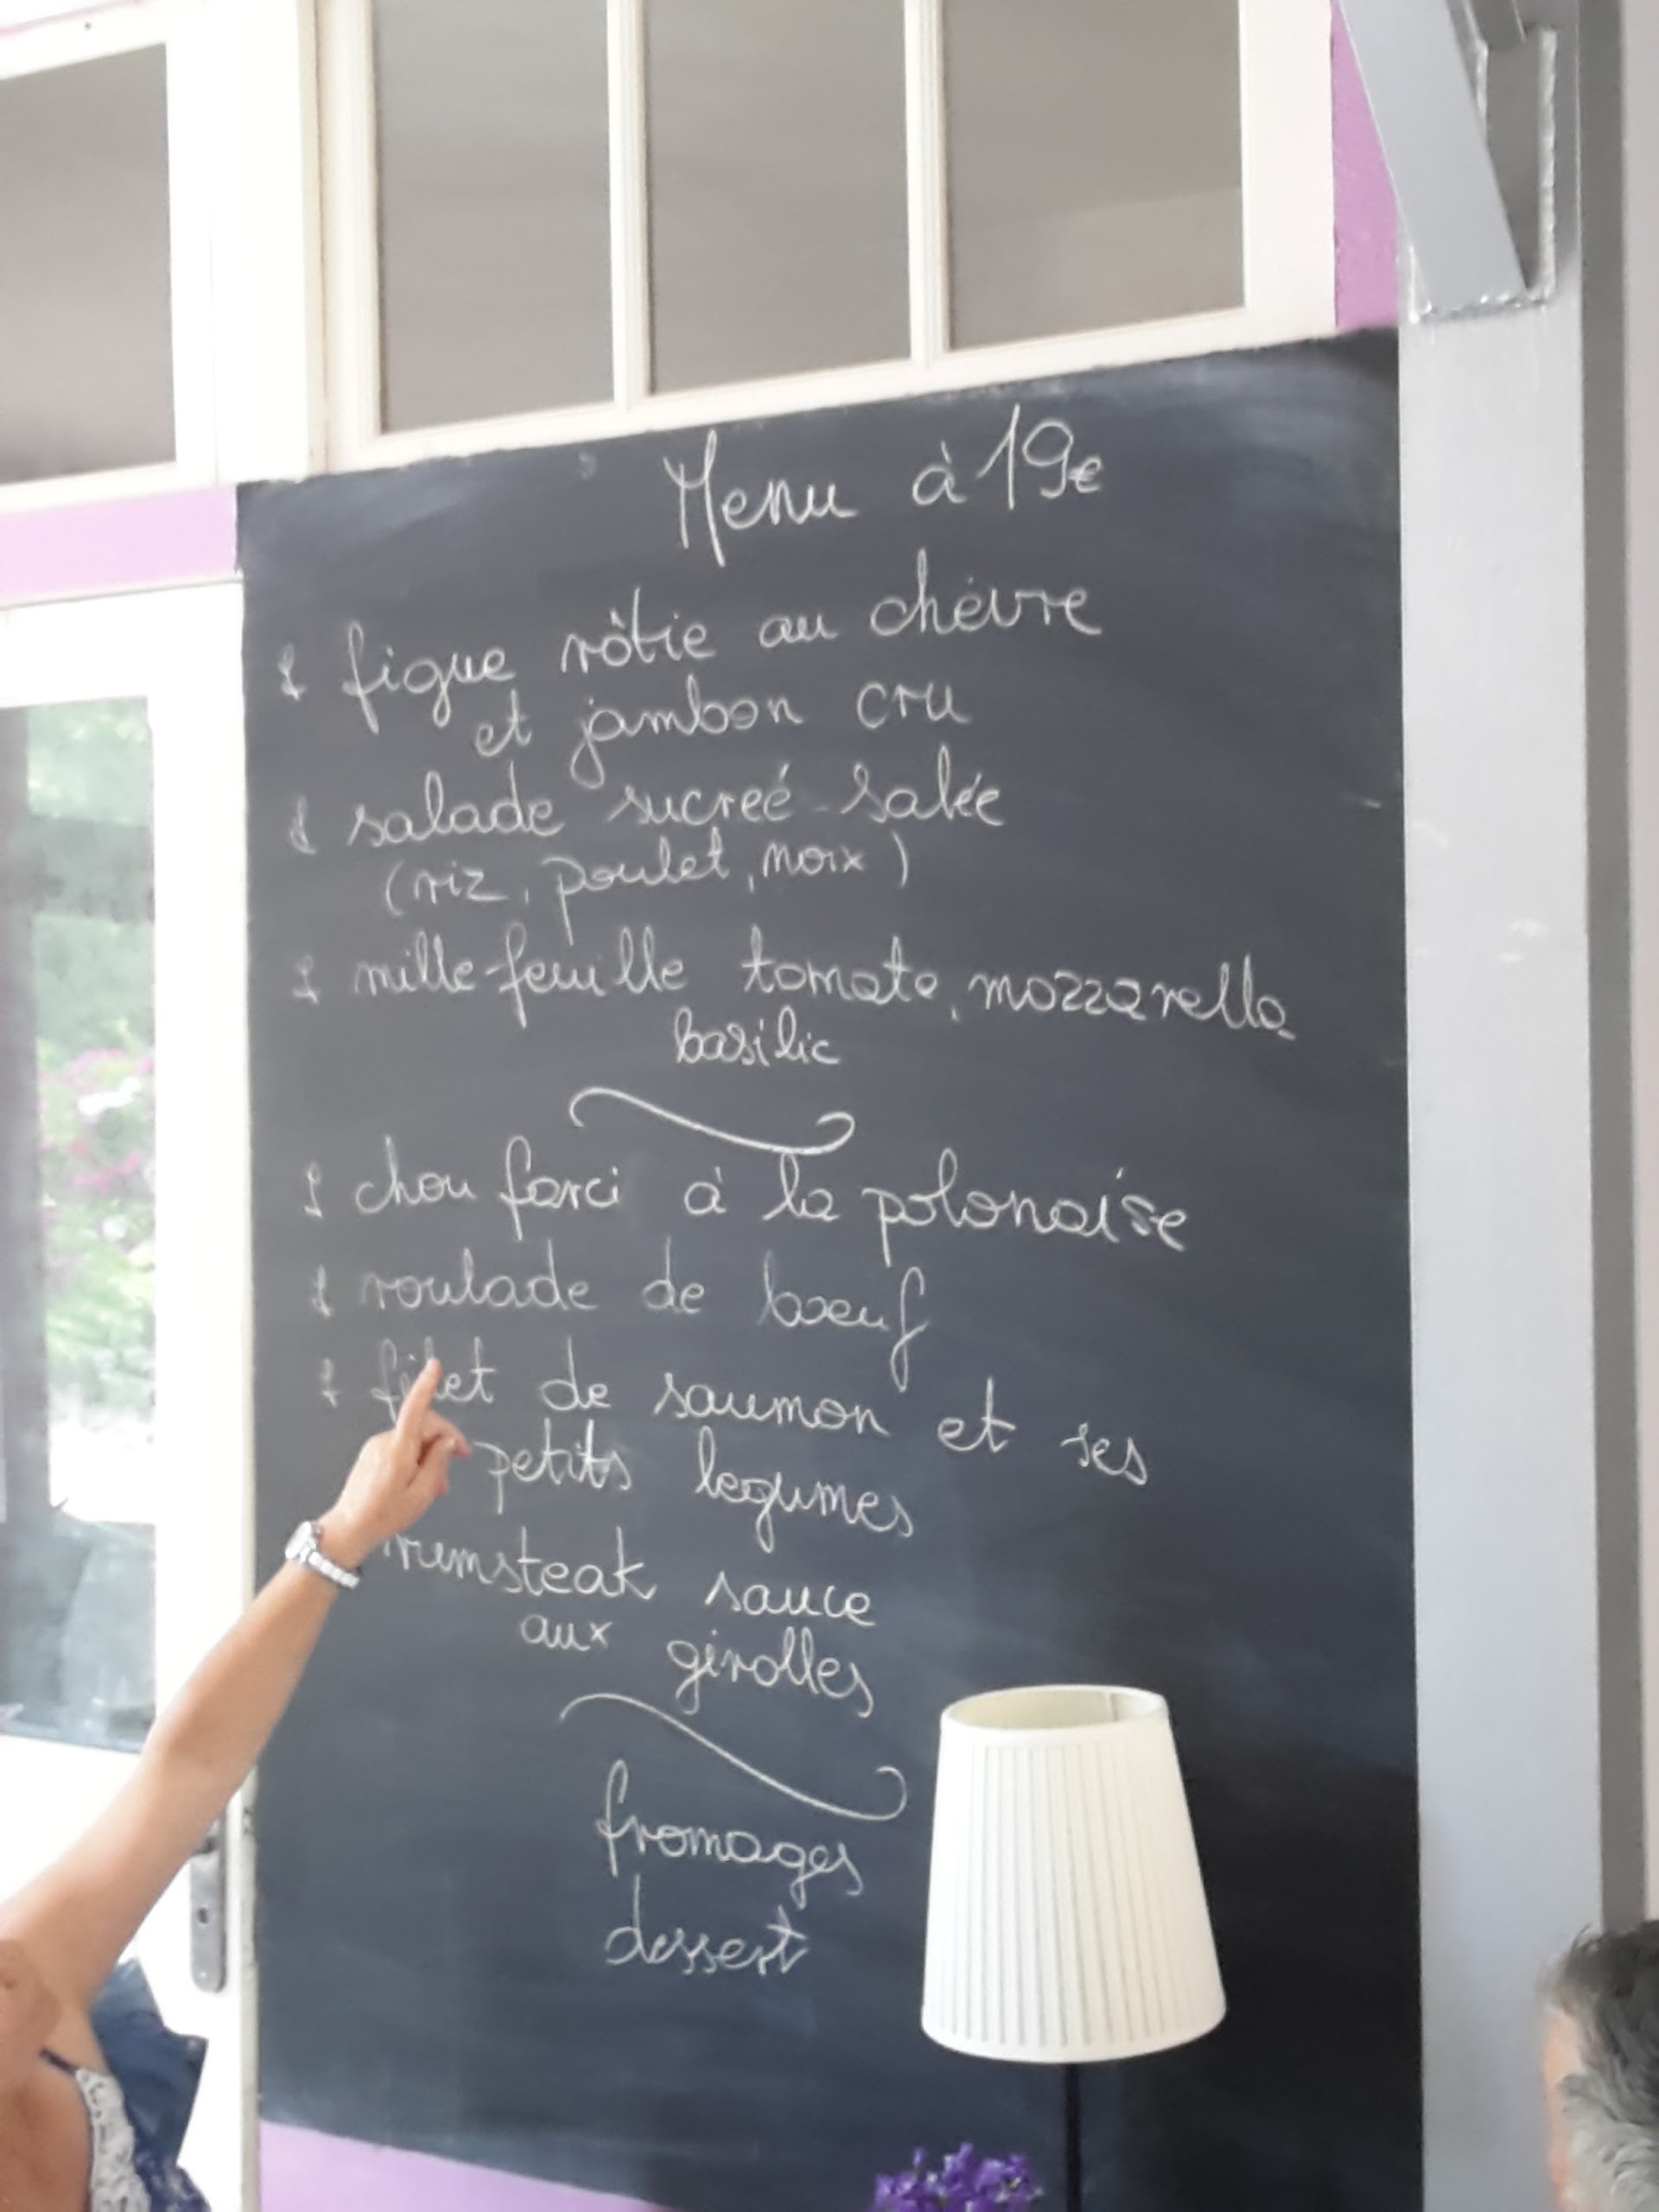 Menu à 19€
figue rôtie au chèvre
et jambon cru
salade sucreé-salée
(riz, poulet, noix)
mille-feuille tomate, mozzarella
basilic
chou farci à la polonaise
roulade de bœuf
filet de saumon et ses
petits legumes
rumsteak sauce
aux girolles
fromages
dessert